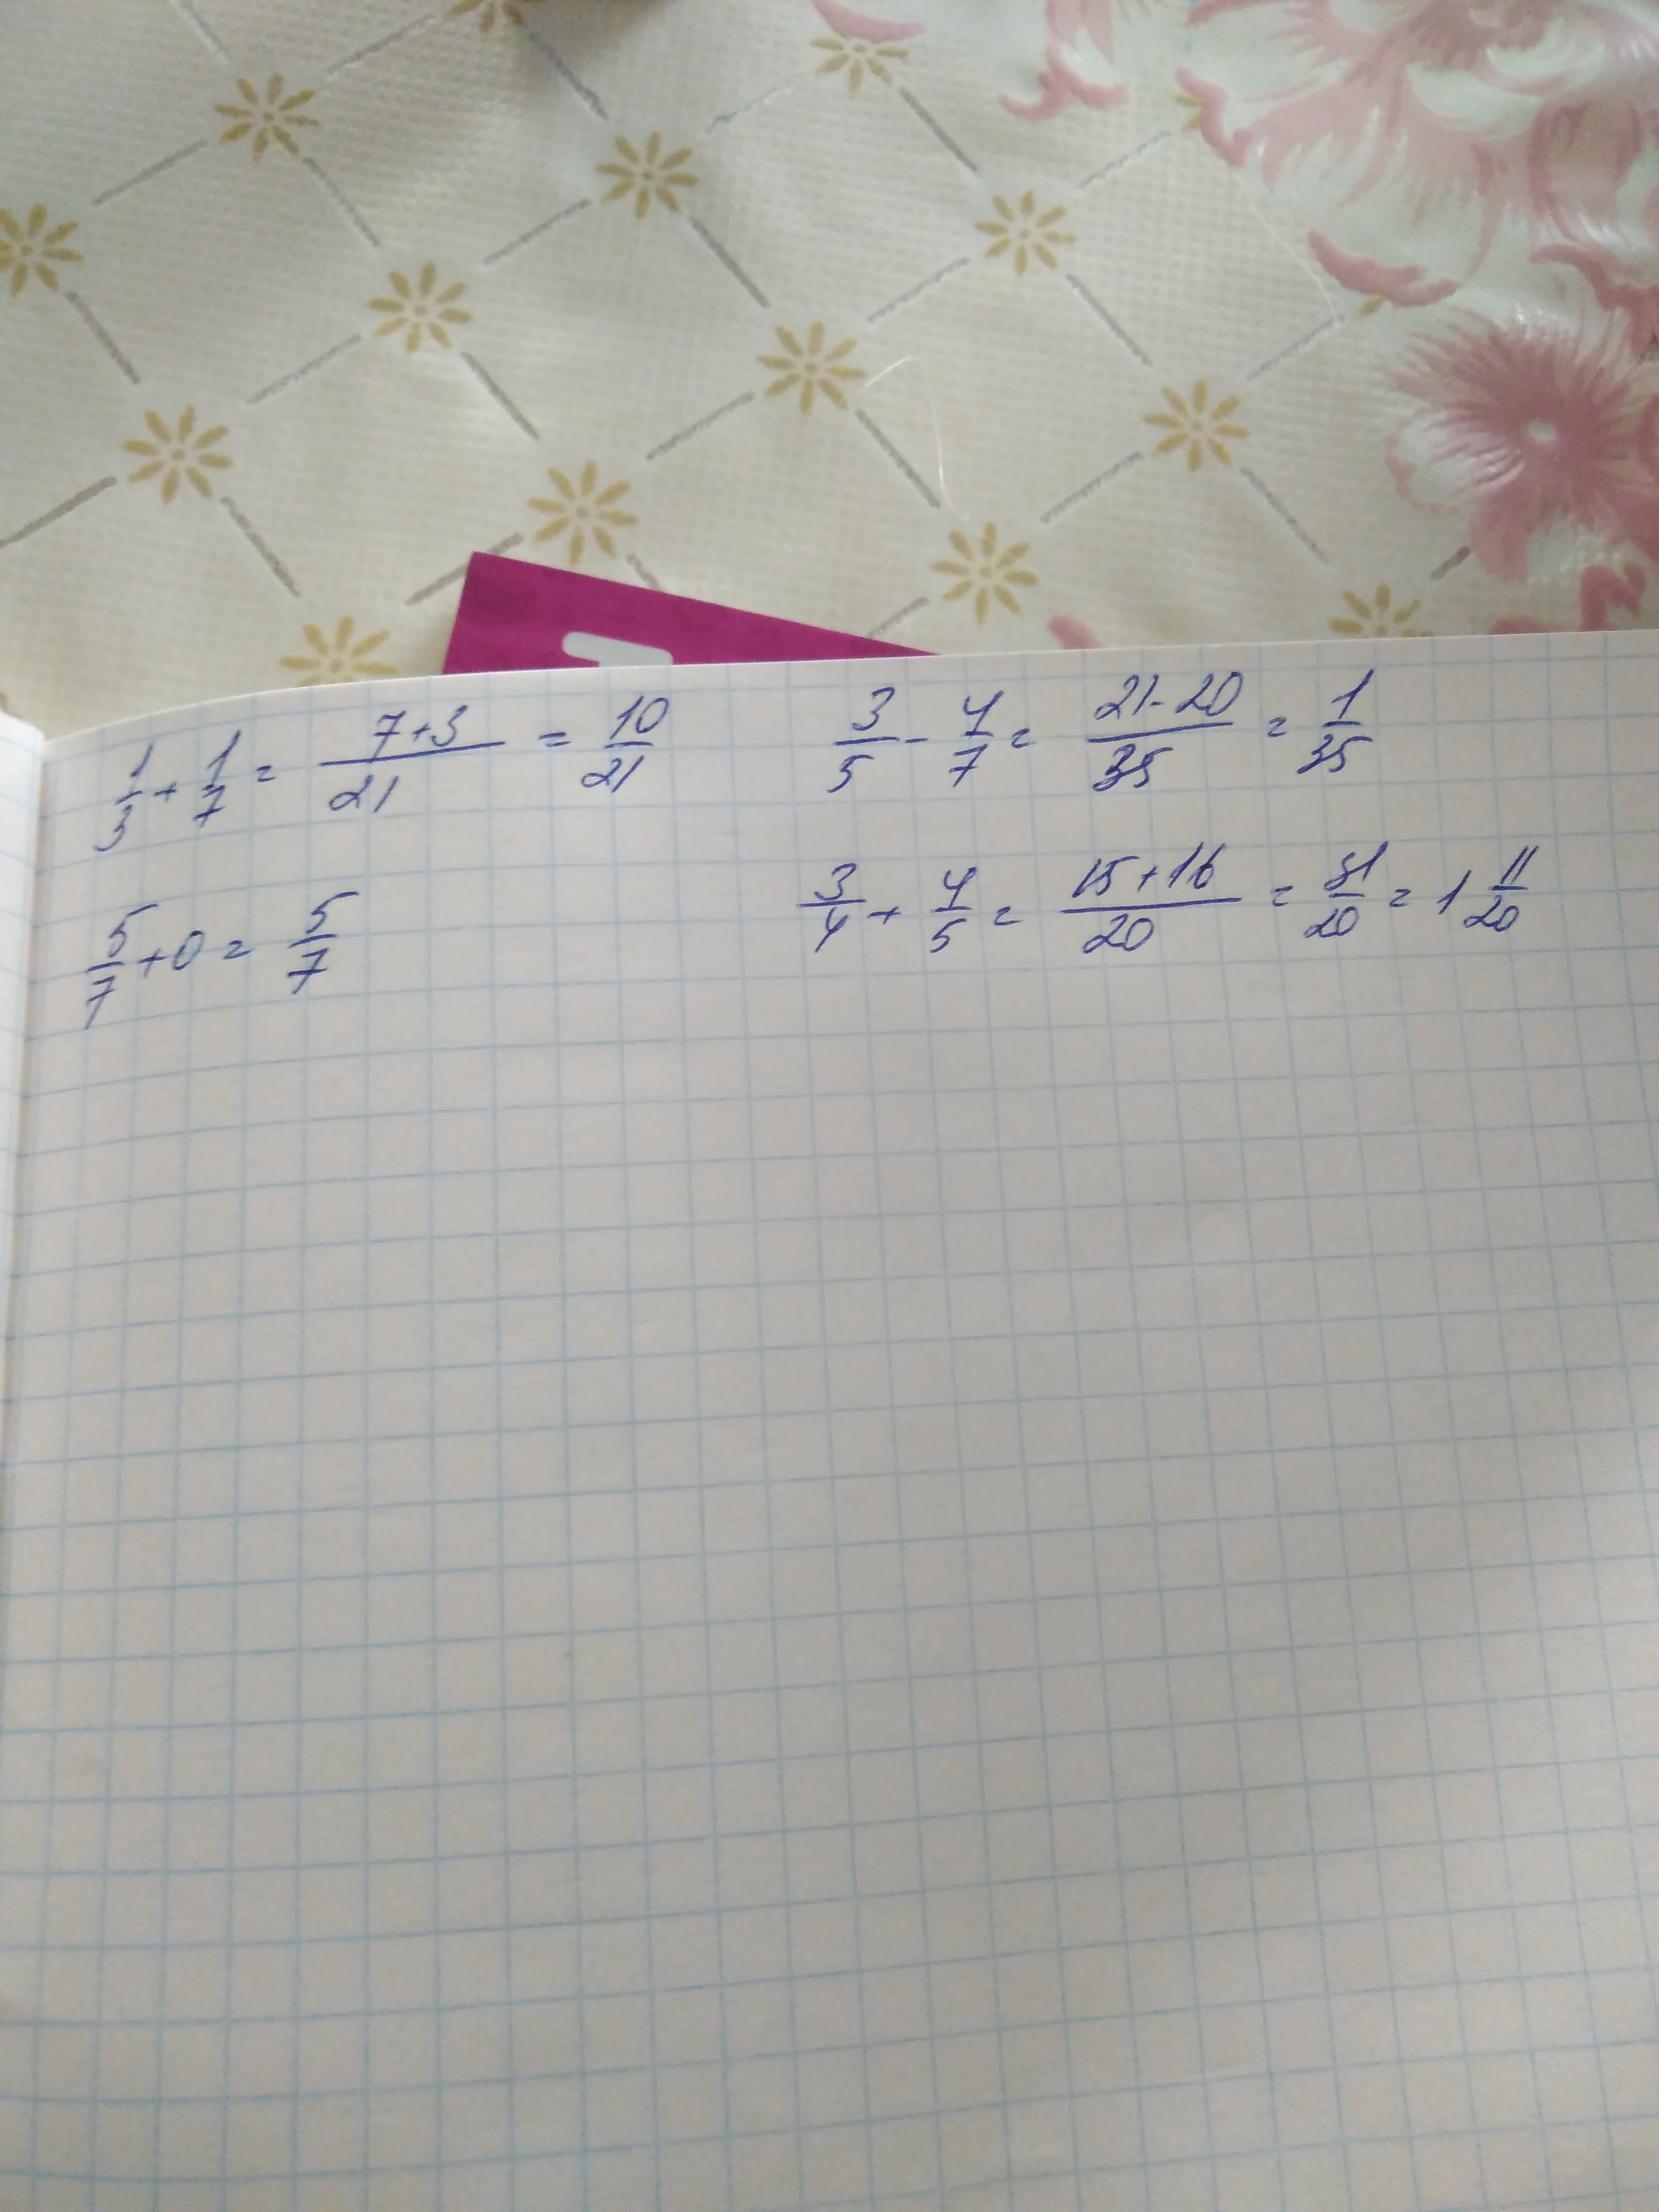 1/3 + 1/7 = (7+3)/21 = 10/21
3/5 - 4/7 = (21-20)/35 = 1/35
5/7 + 0 = 5/7
3/4 + 4/5 = (15+16)/20 = 31/20 = 1 11/20